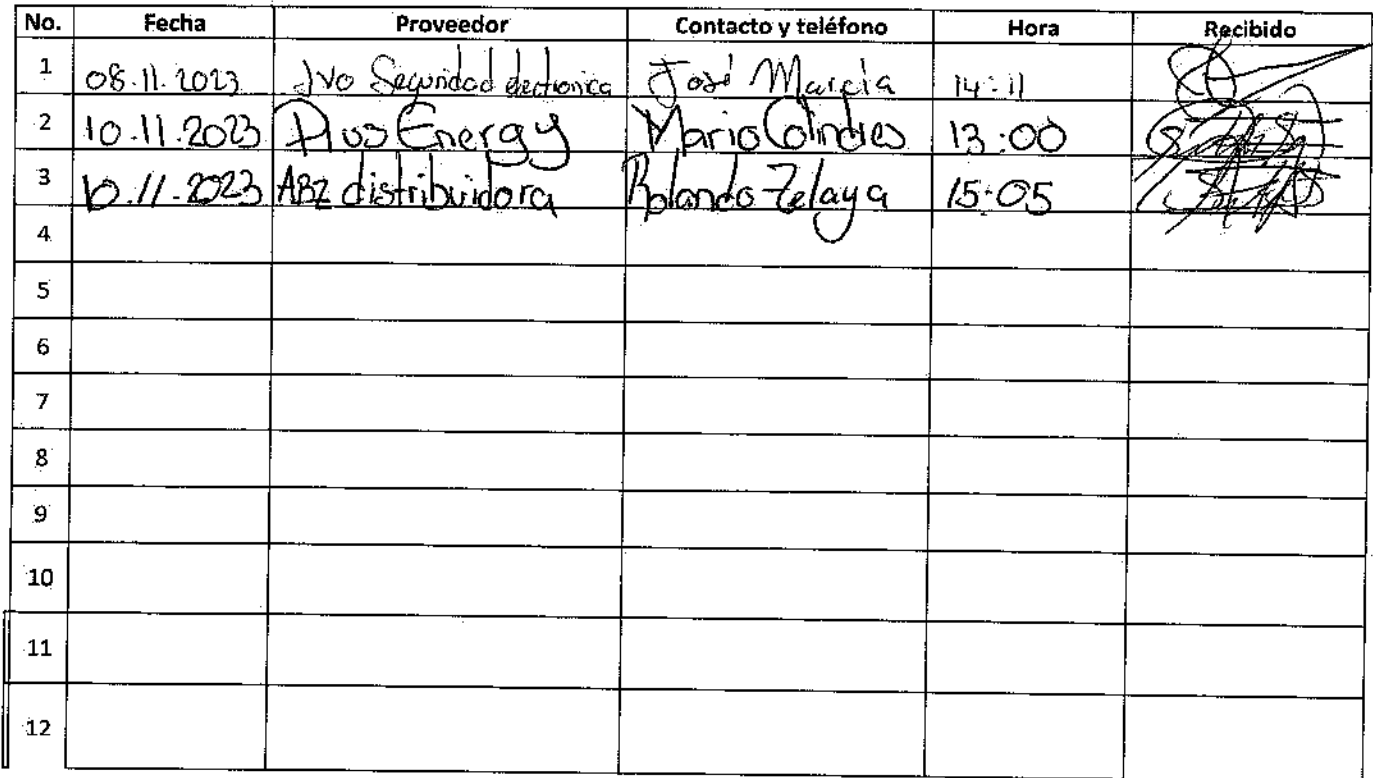 No. Fecha Proveedor Contacto y teléfono Hora Recibido
1 08.11.2023 JVO Seguridad electronica José Marcía 14:11
2 10.11.2023 Plus Energy Mario Colindres 13:00
3 10.11.2023 ABZ distribuidora Rolando Zelaya 15:05
4
5
6
7
8
9
10
11
12